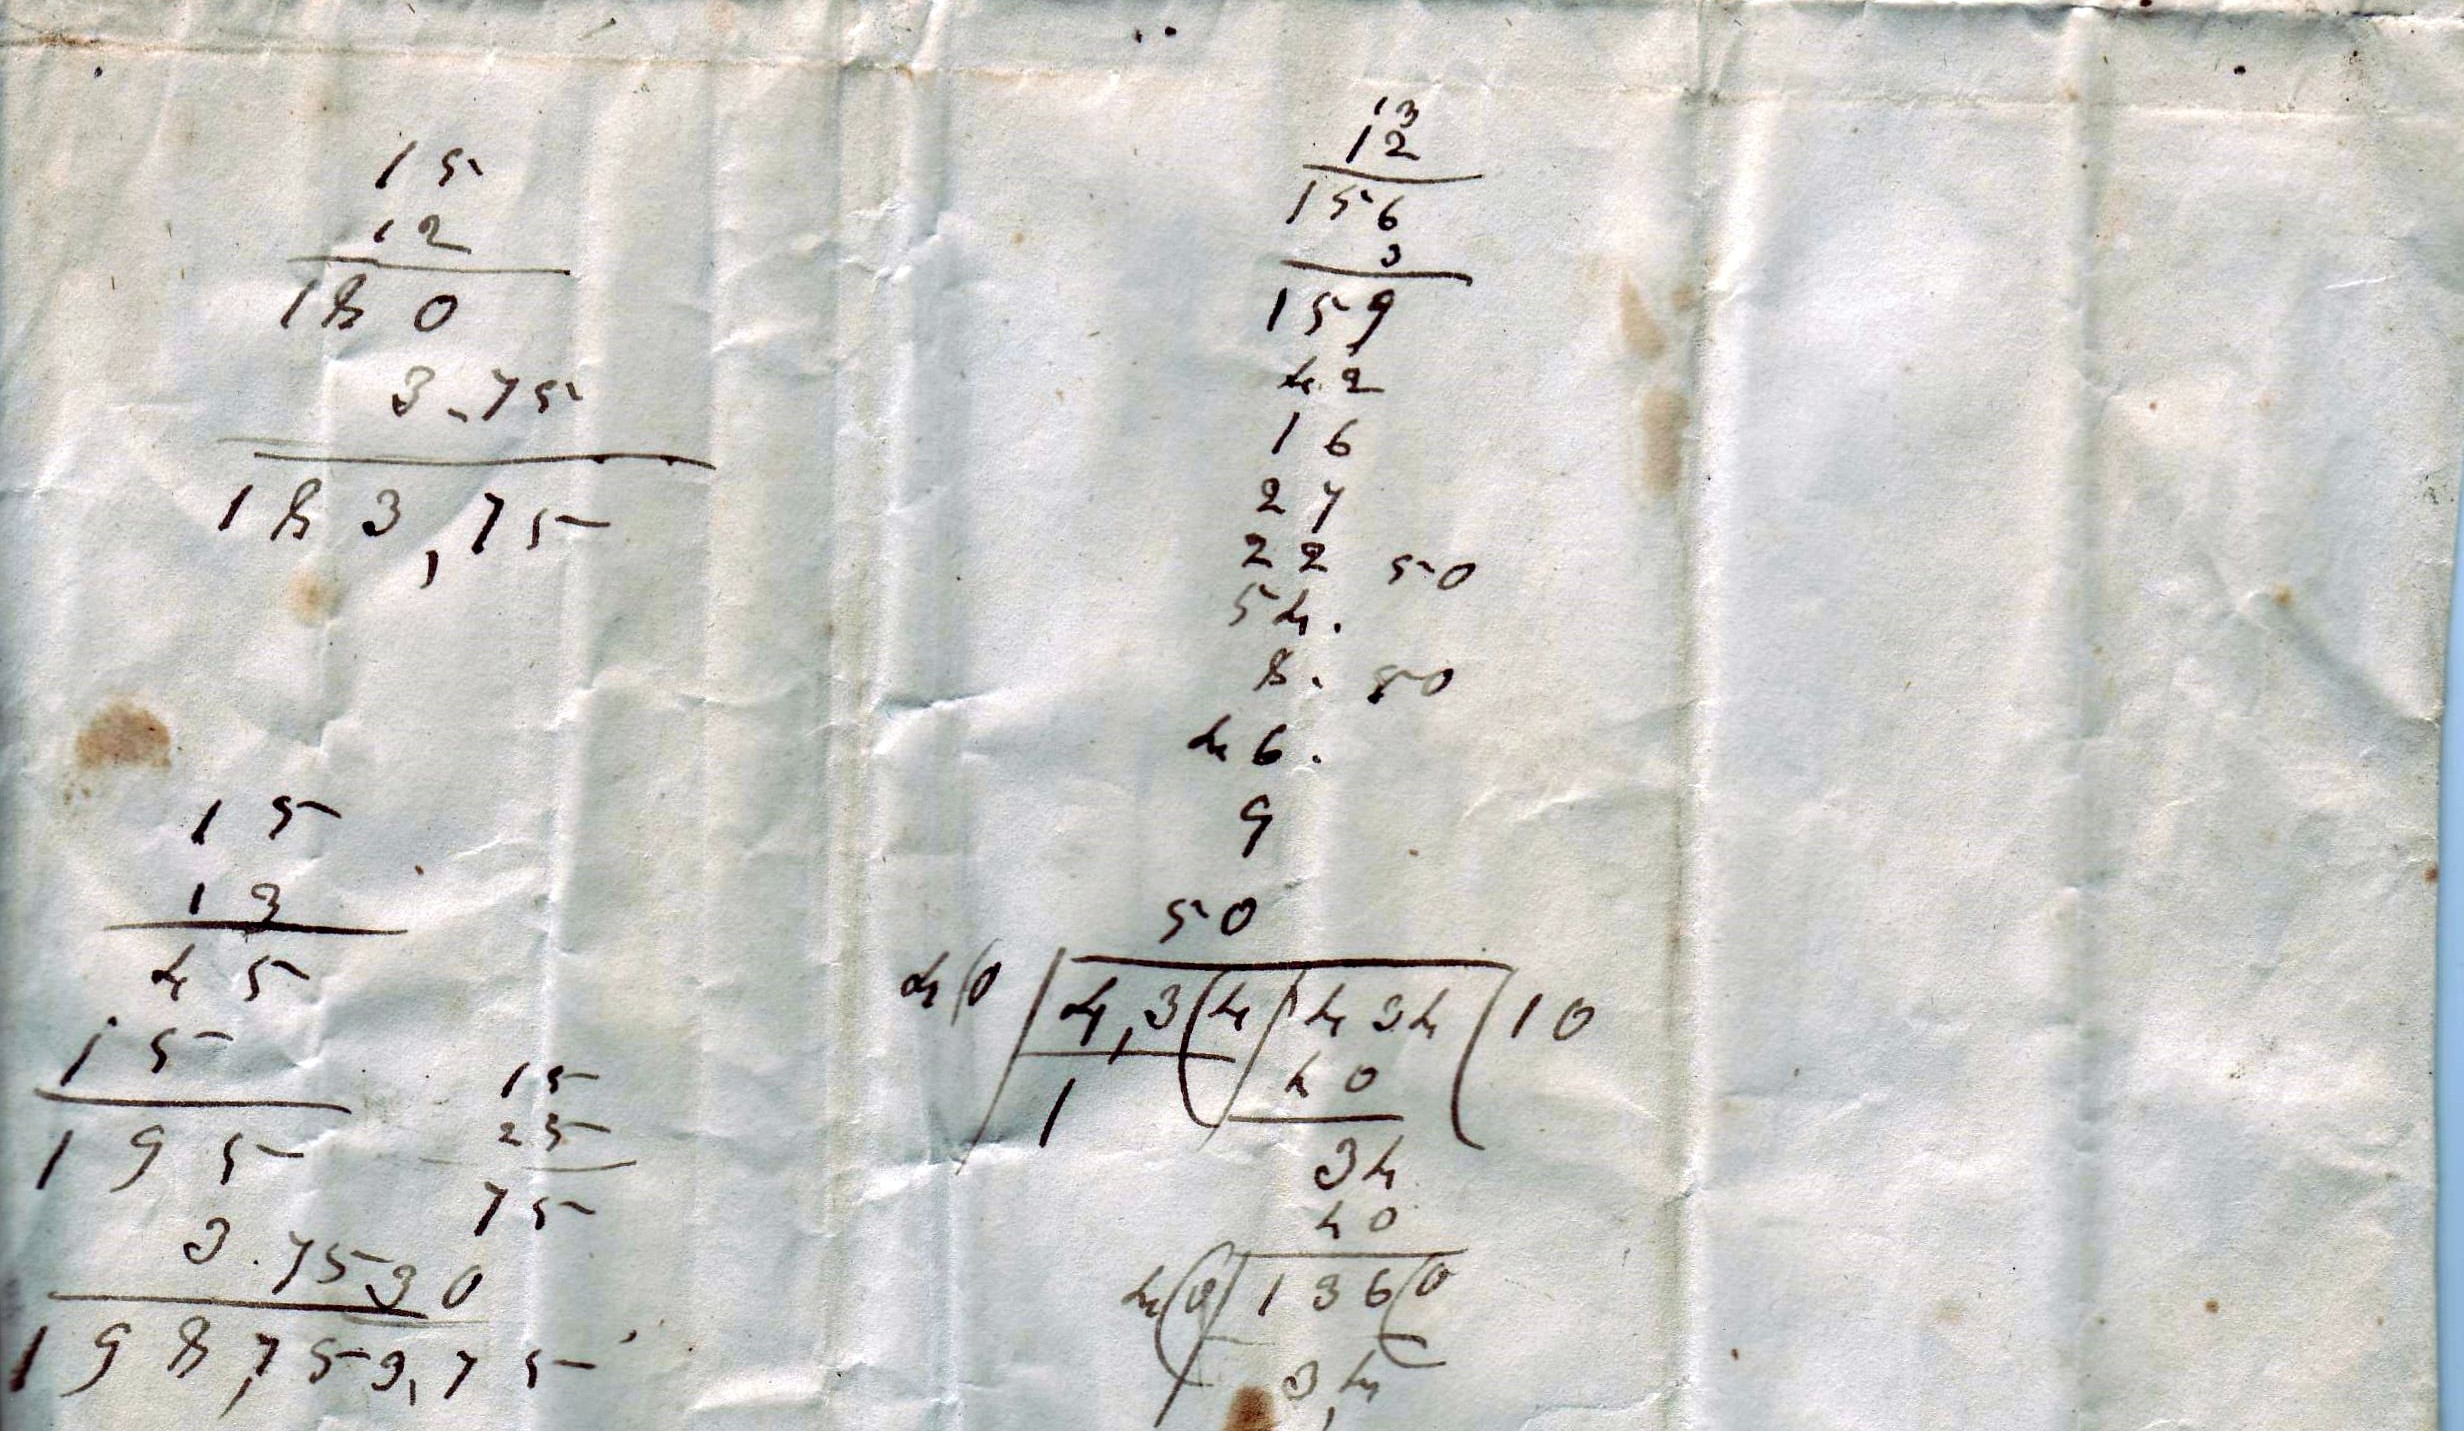 15
12
180
3.75
183,75
15
13
45
15
195
3.75
198,75
15
25
75
30
3,75
13
12
156
3
159
42
16
27
22 50
54.
8. 50
46.
9
50
4(0 / 4,3(4 / 434 ( 10
1
40
34
40
4(0 / 136(0
3,4